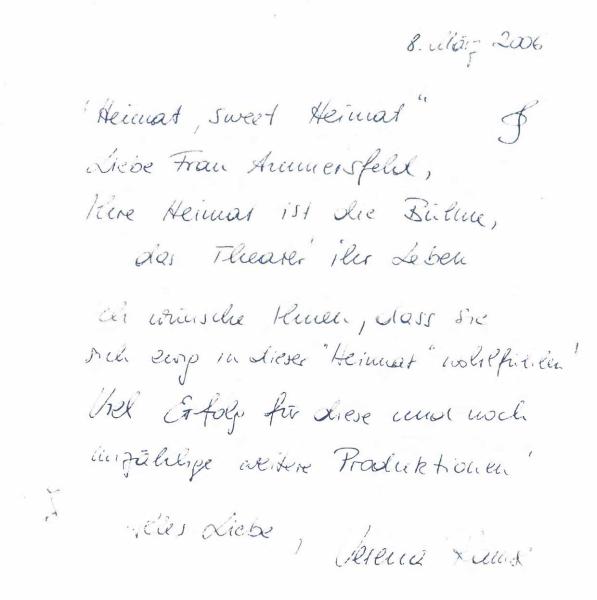 8. März 2006
"Heimat, sweet Heimat"
Liebe Frau Ammersfeld,
Ihre Heimat ist die Bühne,
das Theater ihr Leben
Ich wünsche Ihnen, dass Sie
sich ewig in dieser "Heimat" wohlfühlen!
Viel Erfolg für diese und noch
unzählige weitere Produktionen!
Alles Liebe, Verena